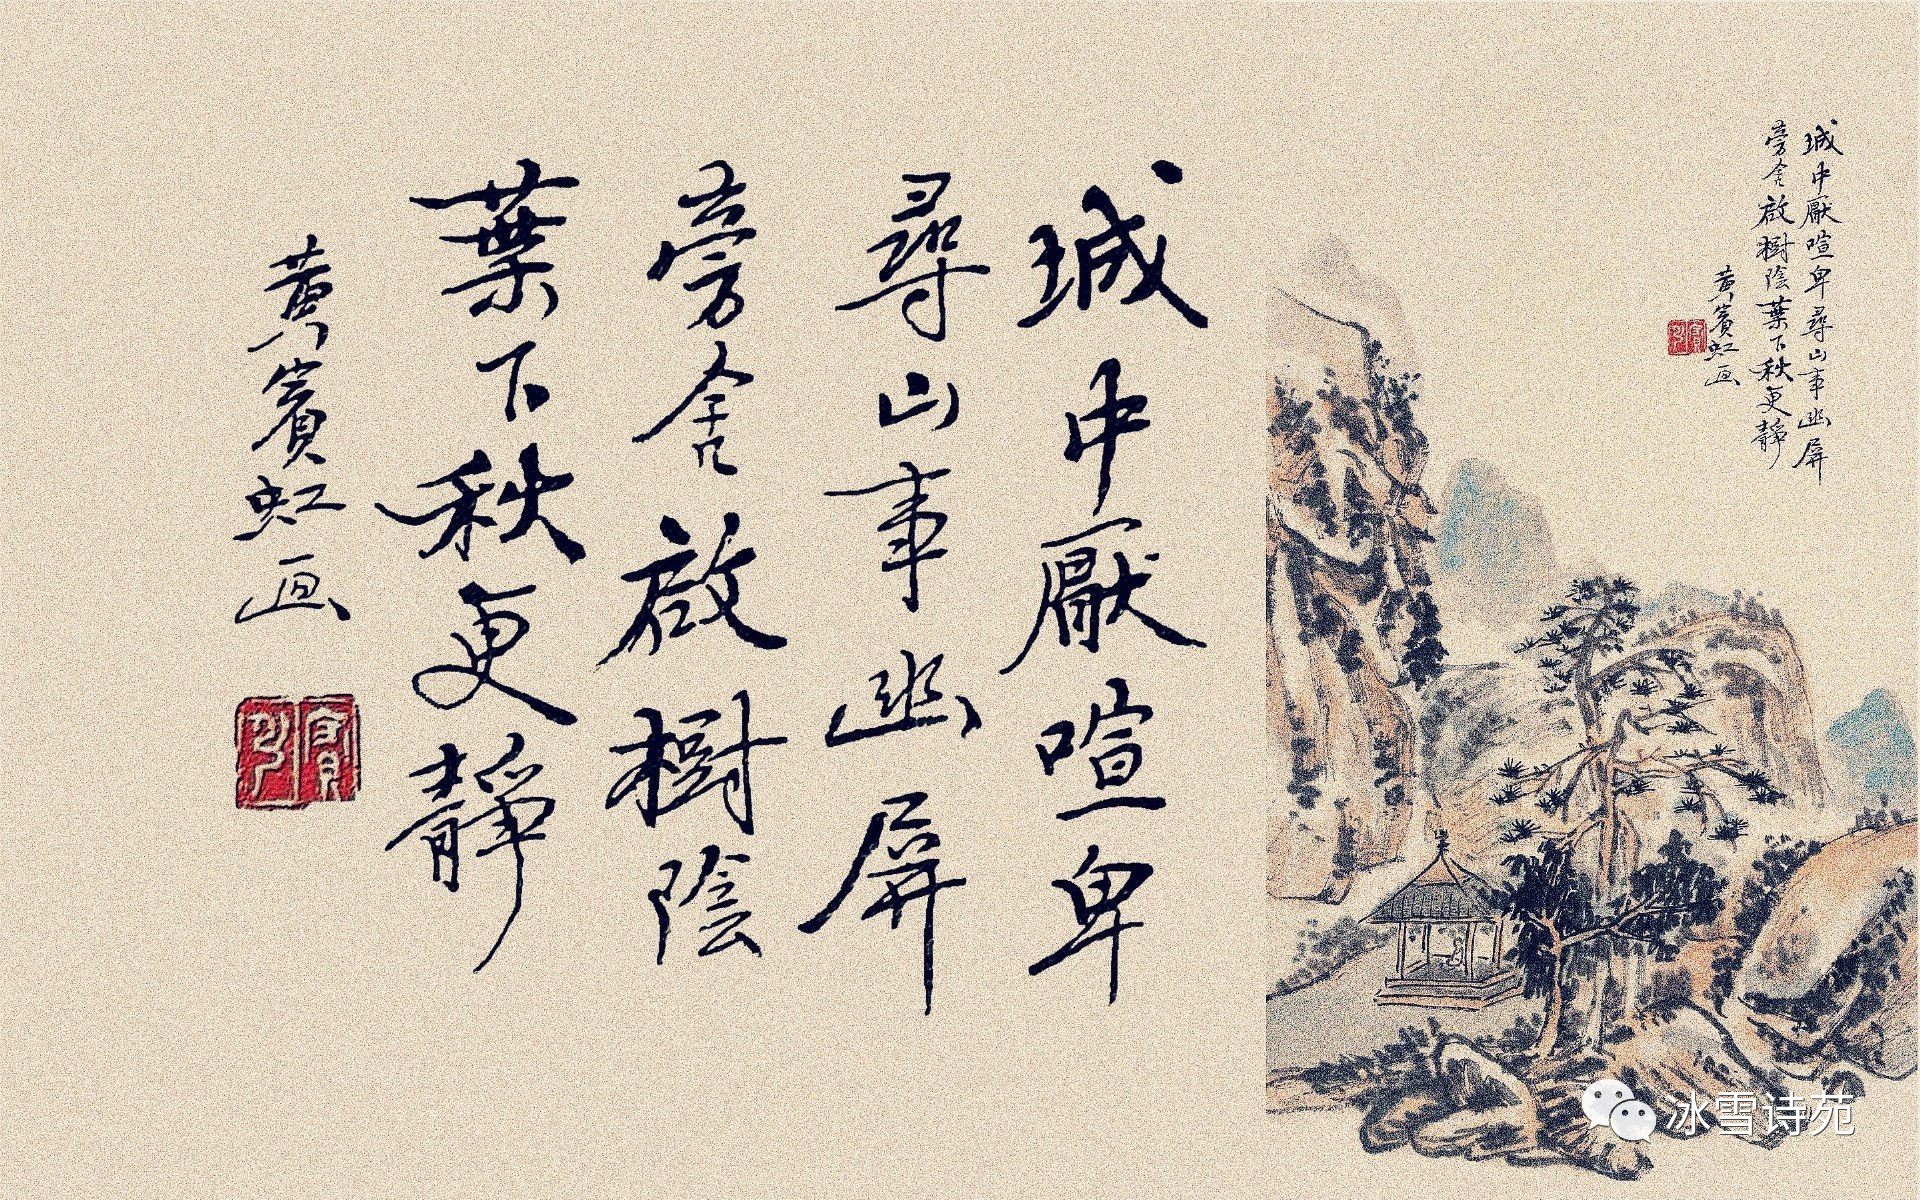 城中厭喧卑
尋山事幽屏
旁舍啟樹陰
葉下秋更靜
黃賓虹画
城中厭喧卑尋山事幽屏
旁舍啟樹陰葉下秋更靜
黃賓虹画
冰雪诗苑